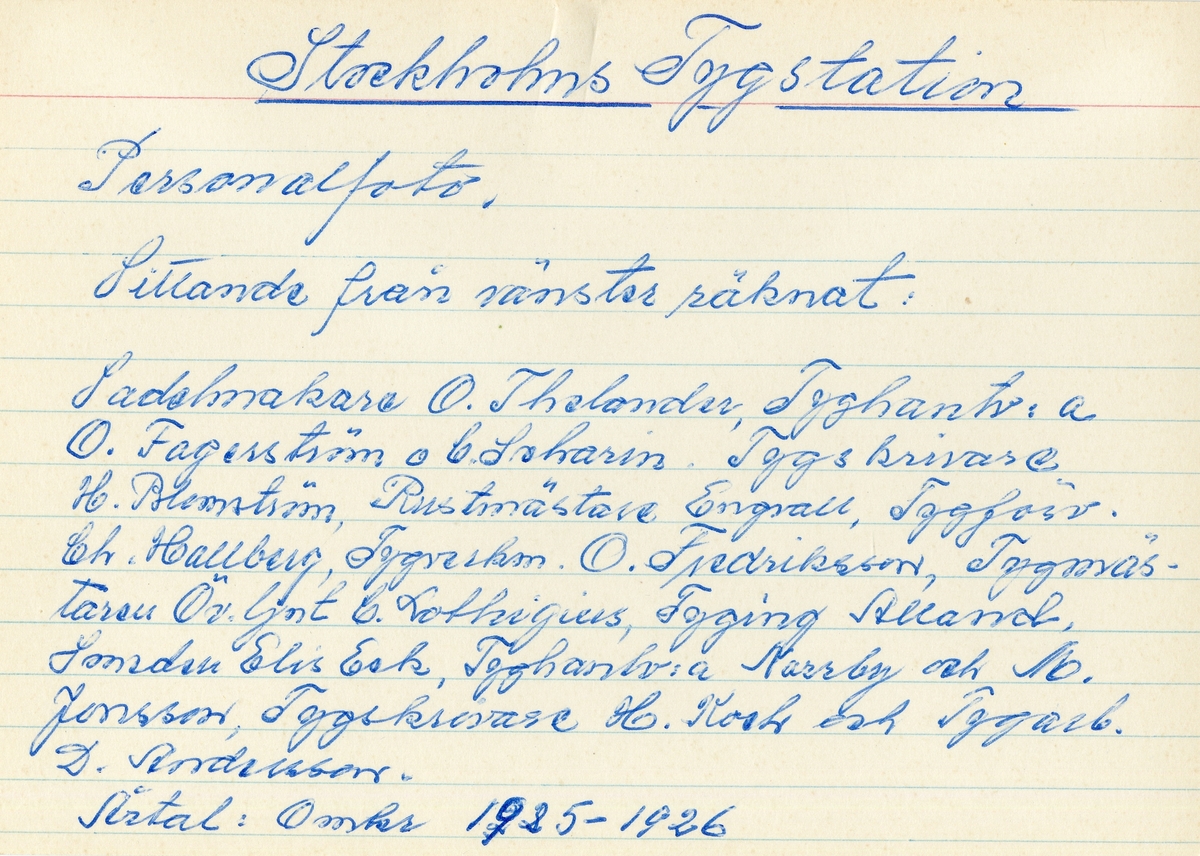 Stockholms Tygstation
Personalfoto.
Sittande från vänster räknat:
Sadelmakare O. Thelander, Tyghantv:a
O. Fagerström o C. Scharin. Tygskrivare
H. Blomström, Rustmästare Engvall, Tygförv.
Ch. Hallberg, Tygverkm. O. Fredriksson, Tygmäs-
taren Öv.ljnt C. Lothigius, Tyging Alland,
Smeden Elis Eek, Tyghantv:a Norrby och M.
Jonsson, Tygskrivare H. Koch och Tygarb.
D. Andersson.
Årtal: Omkr 1925-1926